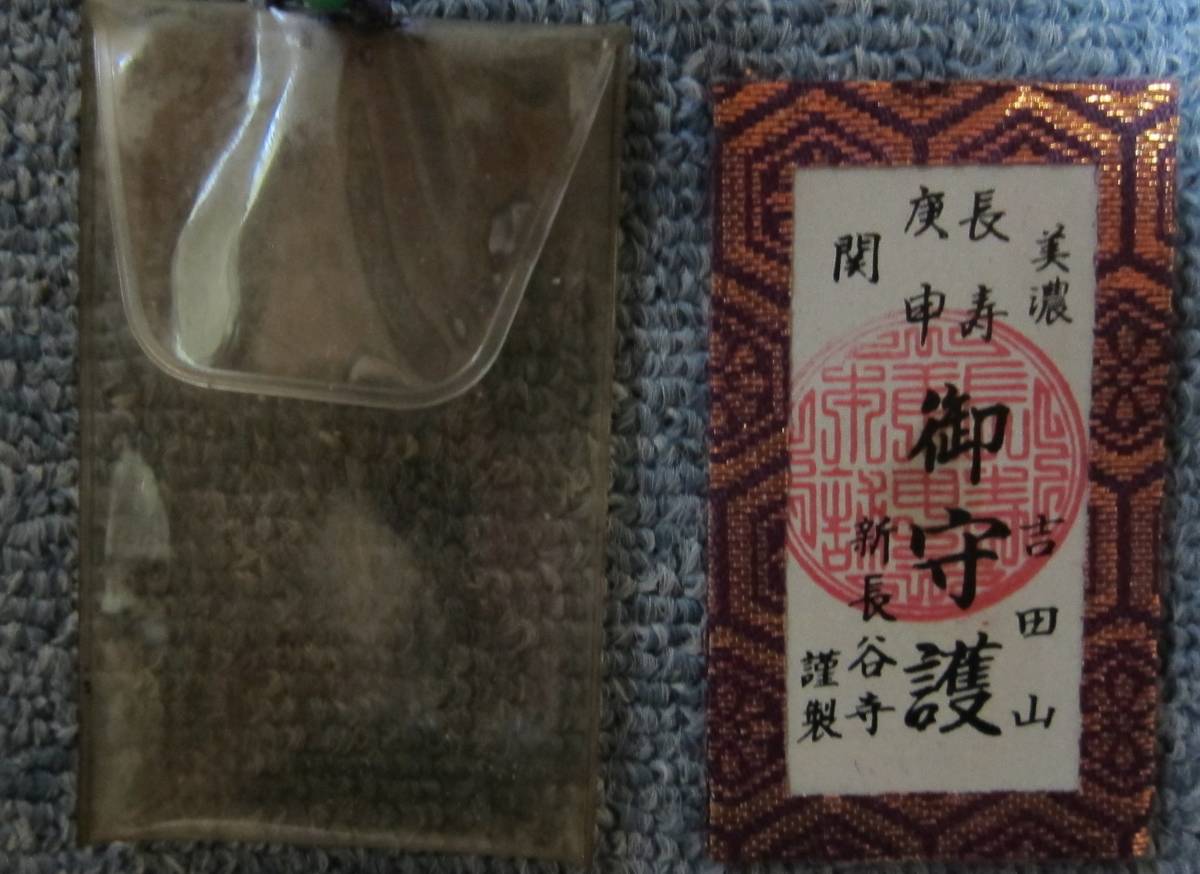 美濃
吉田山
長寿
庚申
御守護
関
新長谷寺
謹製